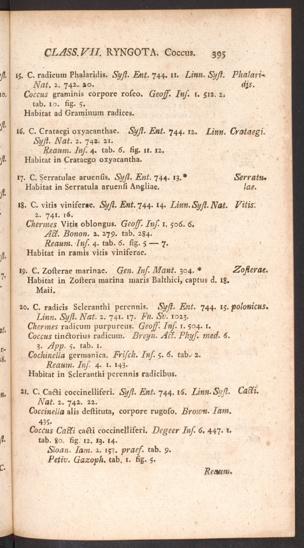 CLASS. VII. RYNGOTA. Coccus. 395
15. C. radicum Phalaridis. Syſt. Ent. 744. 11. Linn. Syſt. Phalaridis.
Nat. 2. 742. 20.
Coccus graminis corpore roſeo. Geoff. Inſ. 1. 512. 2.
tab. 10. fig. 5.
Habitat ad Graminum radices.
16. C. Crataegi oxyacanthae. Syſt. Ent. 744. 12. Linn. Crataegi.
Syſt. Nat. 2. 742. 21.
Reaum. Inſ. 4. tab. 6. fig. 11. 12.
Habitat in Crataego oxyacantha.
17. C. Serratulae aruenſis. Syſt. Ent. 744. 13. * Serratulae.
Habitat in Serratula aruenſi Angliae.
18. C. vitis viniferae. Syſt. Ent. 744. 14. Linn. Syſt. Nat. Vitis.
2. 741. 16.
Chermes Vitis oblongus. Geoff. Inſ. 1. 506. 6.
Act. Bonon. 2. 279. tab. 284.
Reaum. Inſ. 4. tab. 6. fig. 5 — 7.
Habitat in ramis vitis viniferae.
19. C. Zoſterae marinae. Gen. Inſ. Mant. 304. * Zoſterae.
Habitat in Zoſtera marina maris Balthici, captus d. 18.
Maii.
20. C. radicis Scleranthi perennis. Syſt. Ent. 744. 15. polonicus.
Linn. Syſt. Nat. 2. 741. 17. Fn. Sv. 1023.
Chermes radicum purpureus. Geoff. Inſ. 1. 504. 1.
Coccus tinctorius radicum. Breyn. Act. Phyſ. med. 6.
3. App. 5. tab. 1.
Cochinelia germanica. Friſch. Inſ. 5. 6. tab. 2.
Reaum. Inſ. 4. 1. 143.
Habitat in Scleranthi perennis radicibus.
21. C. Cacti coccinelliferi. Syſt. Ent. 744. 16. Linn. Syſt. Cacti.
Nat. 2. 742. 22.
Coccinelia alis deſtituta, corpore rugoſo. Brown. Iam.
435.
Coccus Cacti cacti coccinelliferi. Degeer Inſ. 6. 447. 1.
tab. 80. fig. 12. 13. 14.
Sloan. Iam. 2. 152. praeſ. tab. 9.
Petiv. Gazoph. tab. 1. fig. 5.
Reaum.